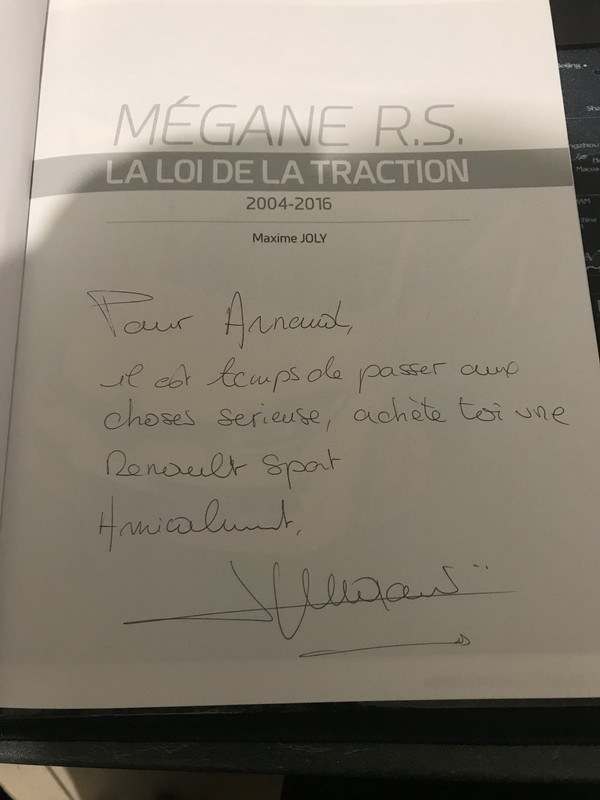 MÉGANE R.S.
LA LOI DE LA TRACTION
2004-2016
Maxime JOLY
Pour Arnaud,
il est temps de passer aux
choses serieuse, achète toi une
Renault Sport
Amicalement,